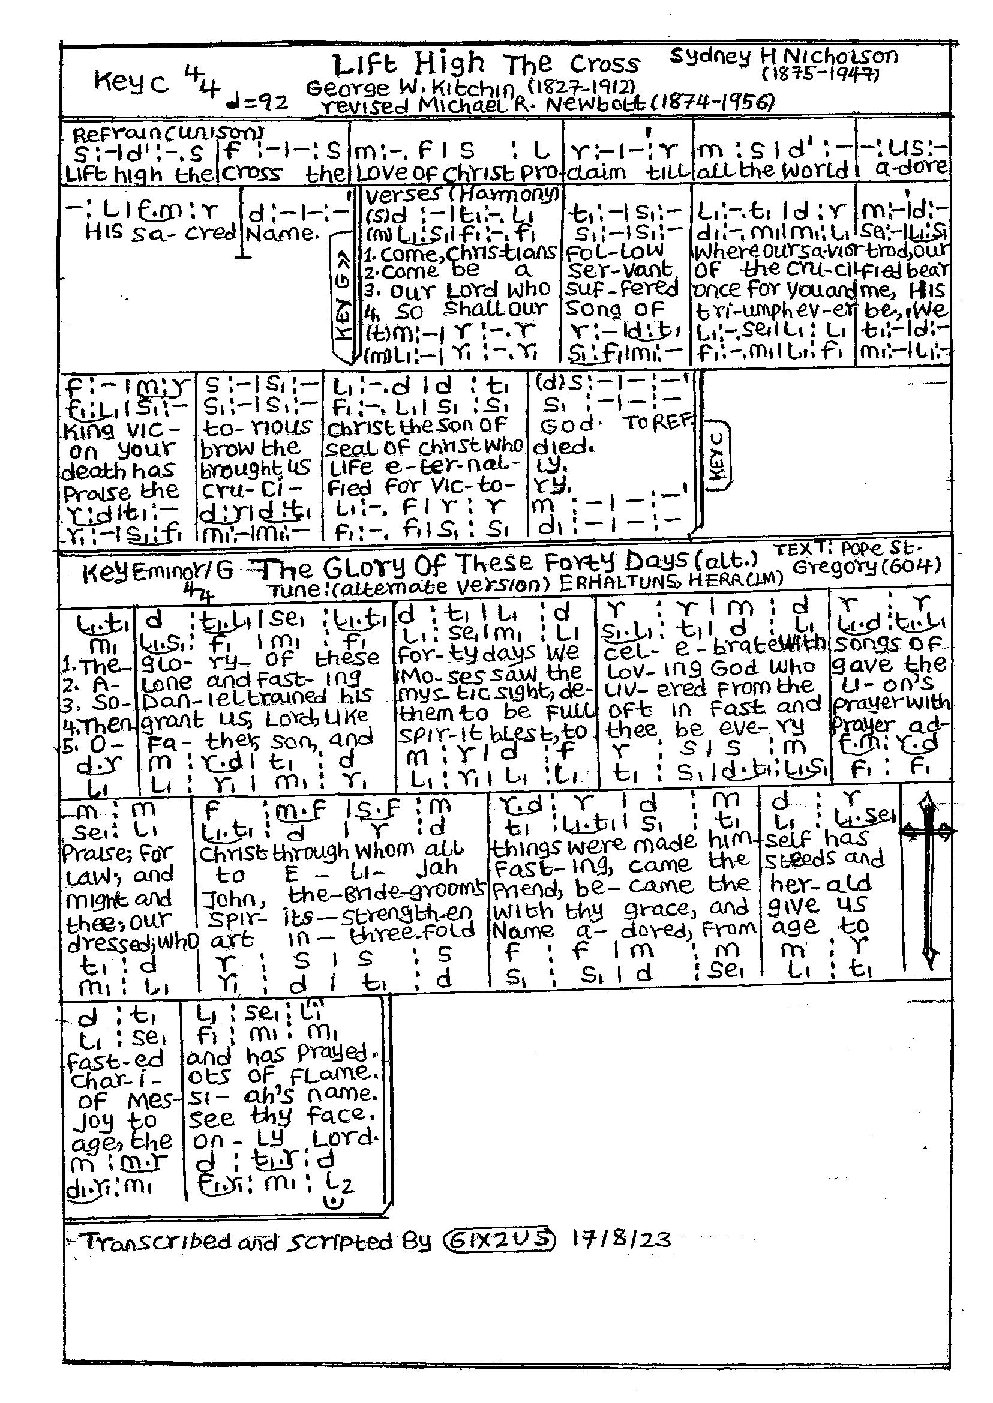 Key C 4/4
d=92
Lift High The Cross
George W. Kitchin (1827-1912)
revised Michael R. Newbott (1874-1956)
Sydney H Nicholson
(1875-1947)
Refrain (unison)
s :-|d' :-.s | f' :-|- : s | m :-. f | s : l | r :-|- : r | m : s | d' :- | - : l|s :-
Lift high the cross the Love of Christ Pro claim till all the world a-dore
- : l|f.m : r | d :-|- :-
His sa-cred Name.
KEY G
Verses (Harmony)
(s) d :-|t₁ :-. l₁ | t₁ :-|s₁ :- | l₁ :-. t₁ | d : r | m :-|d :-
(m) l₁ : s₁|f₁ :-. f₁ | s₁ :-|s₁ :- | d₁ :-. m₁|m₁ : l₁ | se₁ :-|l₁ : s₁
1. Come, Christians Fol-low Where our savior trod, our
2. Come be a Ser-vant OF the Cru-ci-fied bear
3. Our Lord who suf-fered once for you and me, His
4. So shall our song of tri-umph ev-er be, We
(t) m :-| r :-. r | r :-|d : t₁ | l₁ :-. se₁|l₁ : l₁ | t₁ :-|d :-
(m) l₁ :-| r₁ :-. r₁ | s₁ : f₁|m₁ :- | f₁ :-. m₁|l₁ : f₁ | m₁ :-|l₁ :-
f :-|m : r | s :-|s₁ :- | l₁ :-. d | d : t₁ | (d) s :-|- :-
f₁ : l₁|s₁ :- | s₁ :-|s₁ :- | f₁ :-. l₁|s₁ : s₁ | s₁ :-|- :-
King vic- to-rious Christ the son of God. TO REF.
on your brow the seal of Christ who died.
death has brought us Life e-ter-nal- ly.
Praise the Cru-ci- fied for vic-to- ry.
r : d|t₁ :- | d : r|d : t₁ | l₁ :-. f | r : r | m :-|- :-
r₁ :-|s₁ : f₁ | m₁ :-|m₁ :- | f₁ :-. f₁|s₁ : s₁ | d₁ :-|- :-
KEY C
Key E minor/G
4/4
The Glory Of These Forty Days (alt.)
Tune: (alternate version) ERHALT UNS, HERR (LM)
TEXT: Pope St.
Gregory (604)
l₁.t₁ | d : t₁.l₁|se₁ : l₁.t₁ | d : t₁|l₁ : d | r : r|m : d | r : r
m₁ | l₁.s₁ : f₁|m₁ : f₁ | l₁ : se₁|m₁ : l₁ | s₁.l₁ : t₁|d : l₁ | l₁.d : t₁.l₁
1. The- glo- ry- of these for-ty days we cel- e-brate with songs of
2. A- lone and fast-ing Mo-ses saw the Lov-ing God who gave the
3. So- Dan-iel trained his mys-tic sight, de- liv-ered from the Li-on's
4. Then grant us, Lord, like them to be Full oft in fast and prayer with
5. O- Fa-ther, son, and spir-it blest, to thee be eve-ry Prayer ad-
d.r | m : r.d|t₁ : d | m : r|d : f | r : s|s : m | f.m : r.d
l₁ | l₁ : r₁|m₁ : r₁ | l₁ : r₁|l₁ : t₁ | t₁ : s₁|d.t₁ : l₁.s₁ | f₁ : f₁
m : m | f : m.f|s.f : m | r.d : r|d : m | d : r
se₁ : l₁ | l₁.t₁ : d|r : d | t₁ : l₁.t₁|s₁ : t₁ | l₁ : l₁.se₁
Praise; for Christ through whom all things were made him- self has
Law, and to E - li- jah Fast-ing, came the steeds and
might and John, the-Bride-groom's Friend, be-came the her-ald
thee; our spir- its- strength-en with thy grace, and give us
dressed, who art in- three-fold Name a-dored, from age to
t₁ : d | r : s|s : s | f : f|m : m | m : r
m₁ : l₁ | r₁ : d|t₁ : d | s₁ : s₁|d : se₁ | l₁ : t₁
d : t₁ | l₁ : se₁ : l₁
l₁ : se₁ | f₁ : m₁ : m₁
Fast-ed and has Prayed.
Char-i- ots of Flame.
of Mes- si-ah's name.
Joy to see thy face.
age, the on-ly Lord.
m : m.r | d : t₁.r : d
d₁.r₁ : m₁ | f₁.r₁ : m₁ : l₂
Transcribed and scripted By GIX2US 17/8/23